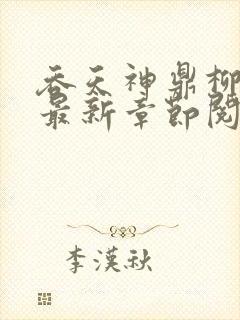 吞天神鼎柳
最新章節閱
李漢秋